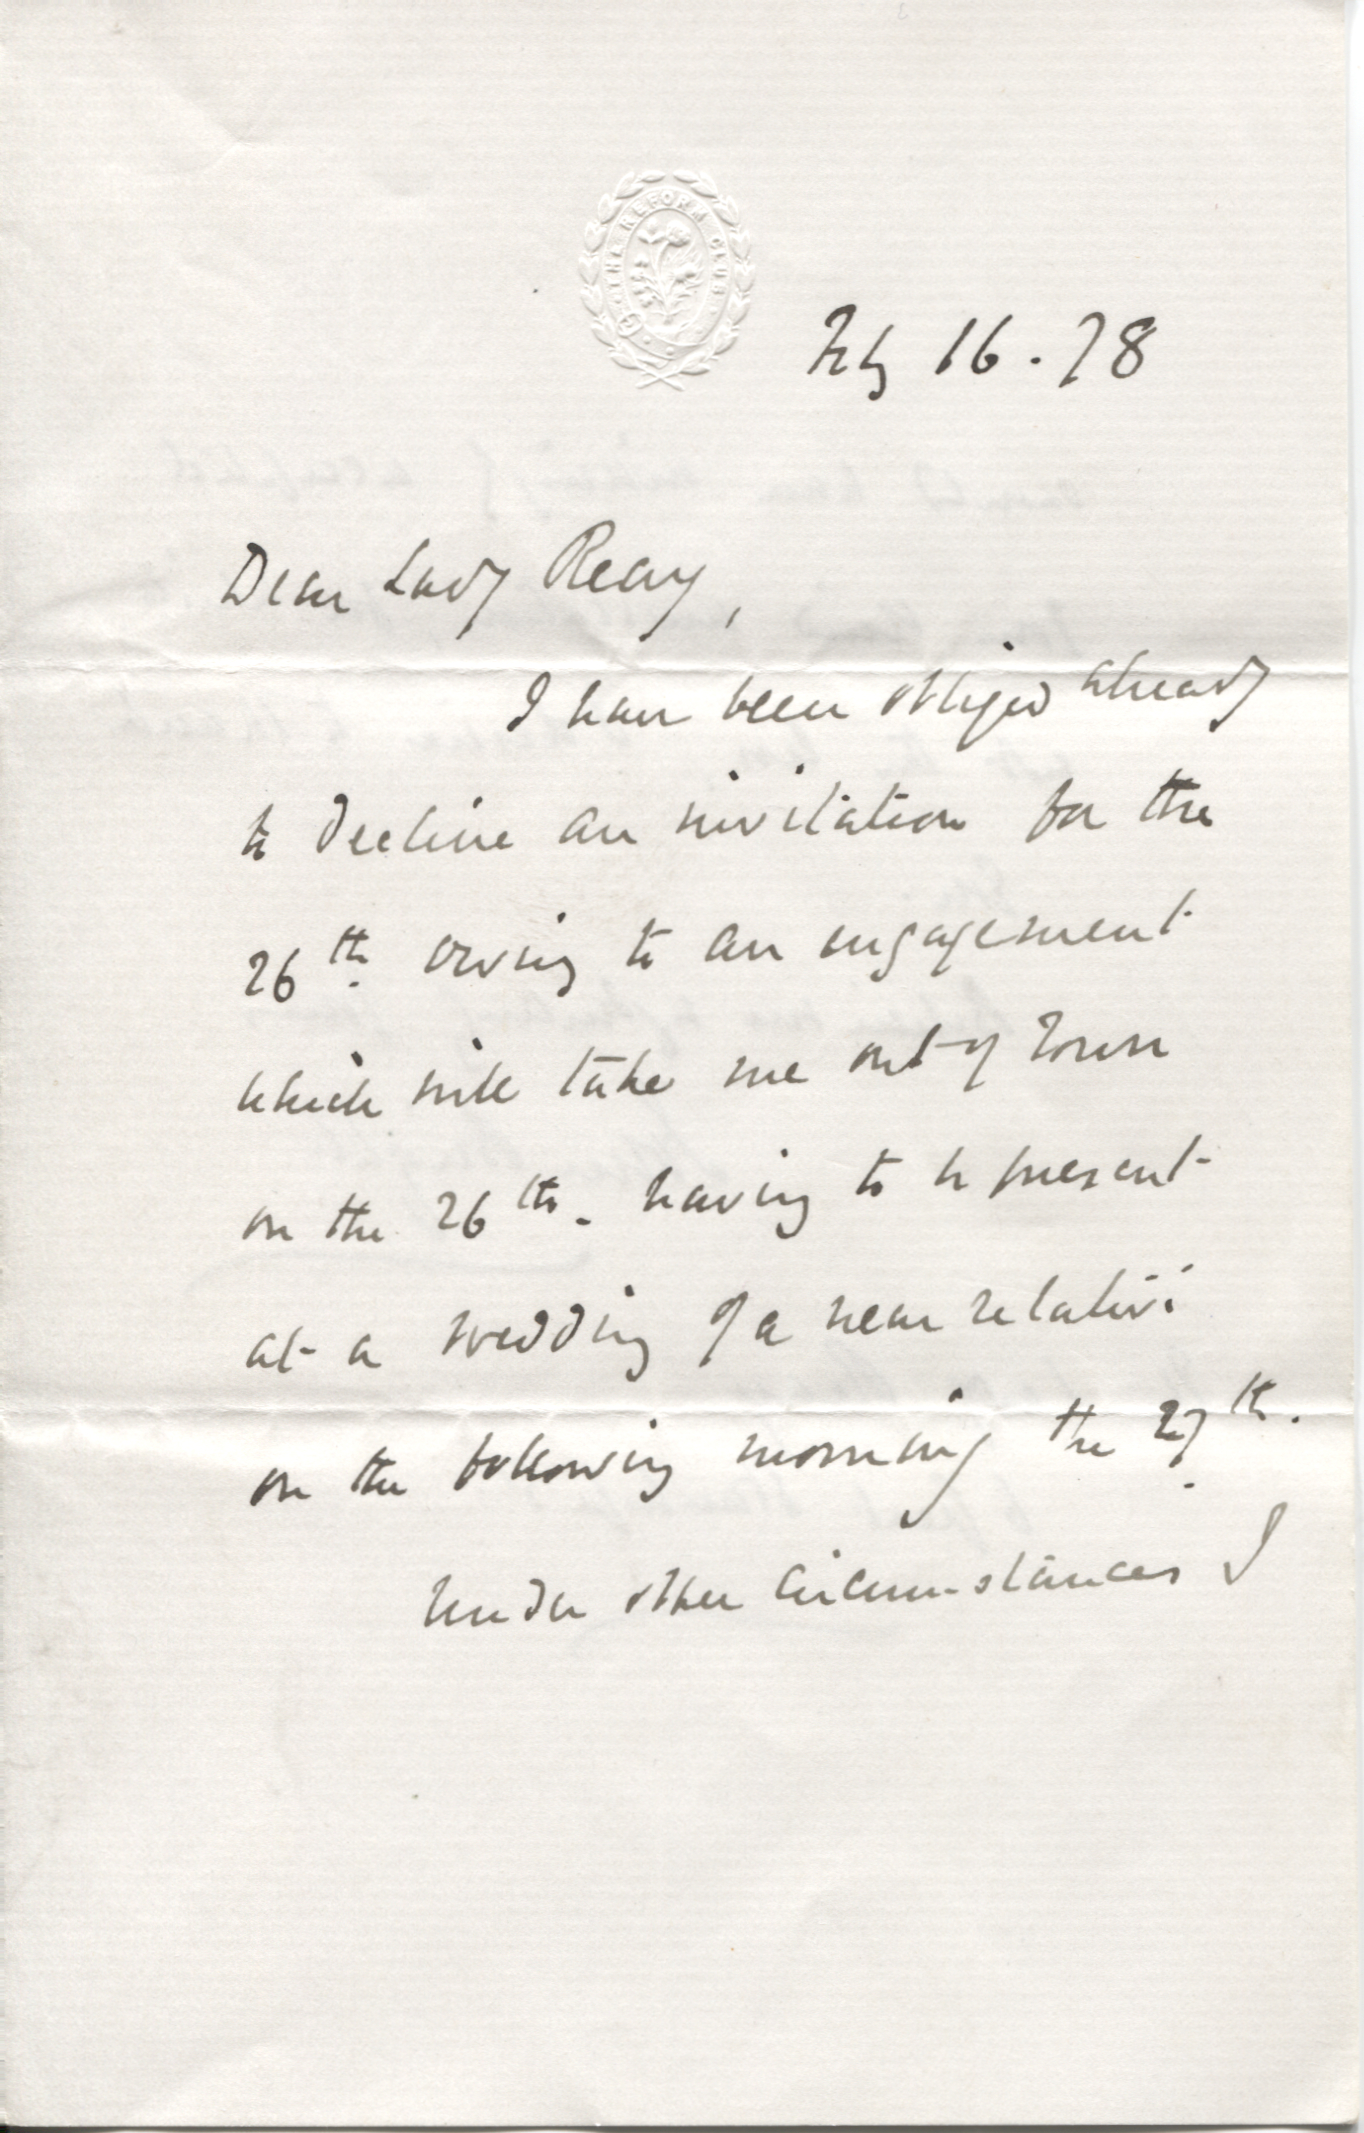 THE REFORM CLUB
Feby 16. 78
Dear Lady Reay,
I have been obliged already
to decline an invitation for the
26th. owing to an engagement
which will take me out of Town
on the 26th. having to be present
at a wedding of a near relative
on the following morning the 27th.
Under other circumstances I